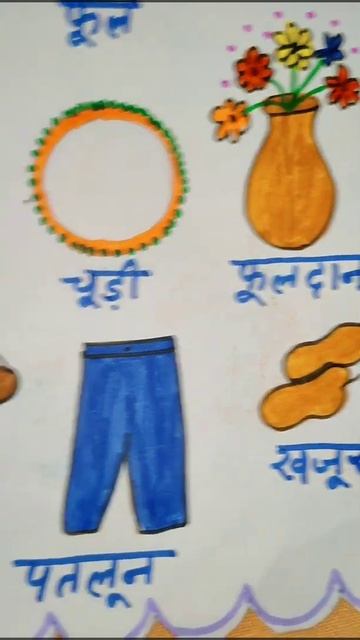 फूल
चूड़ी
फूलदान
पतलून